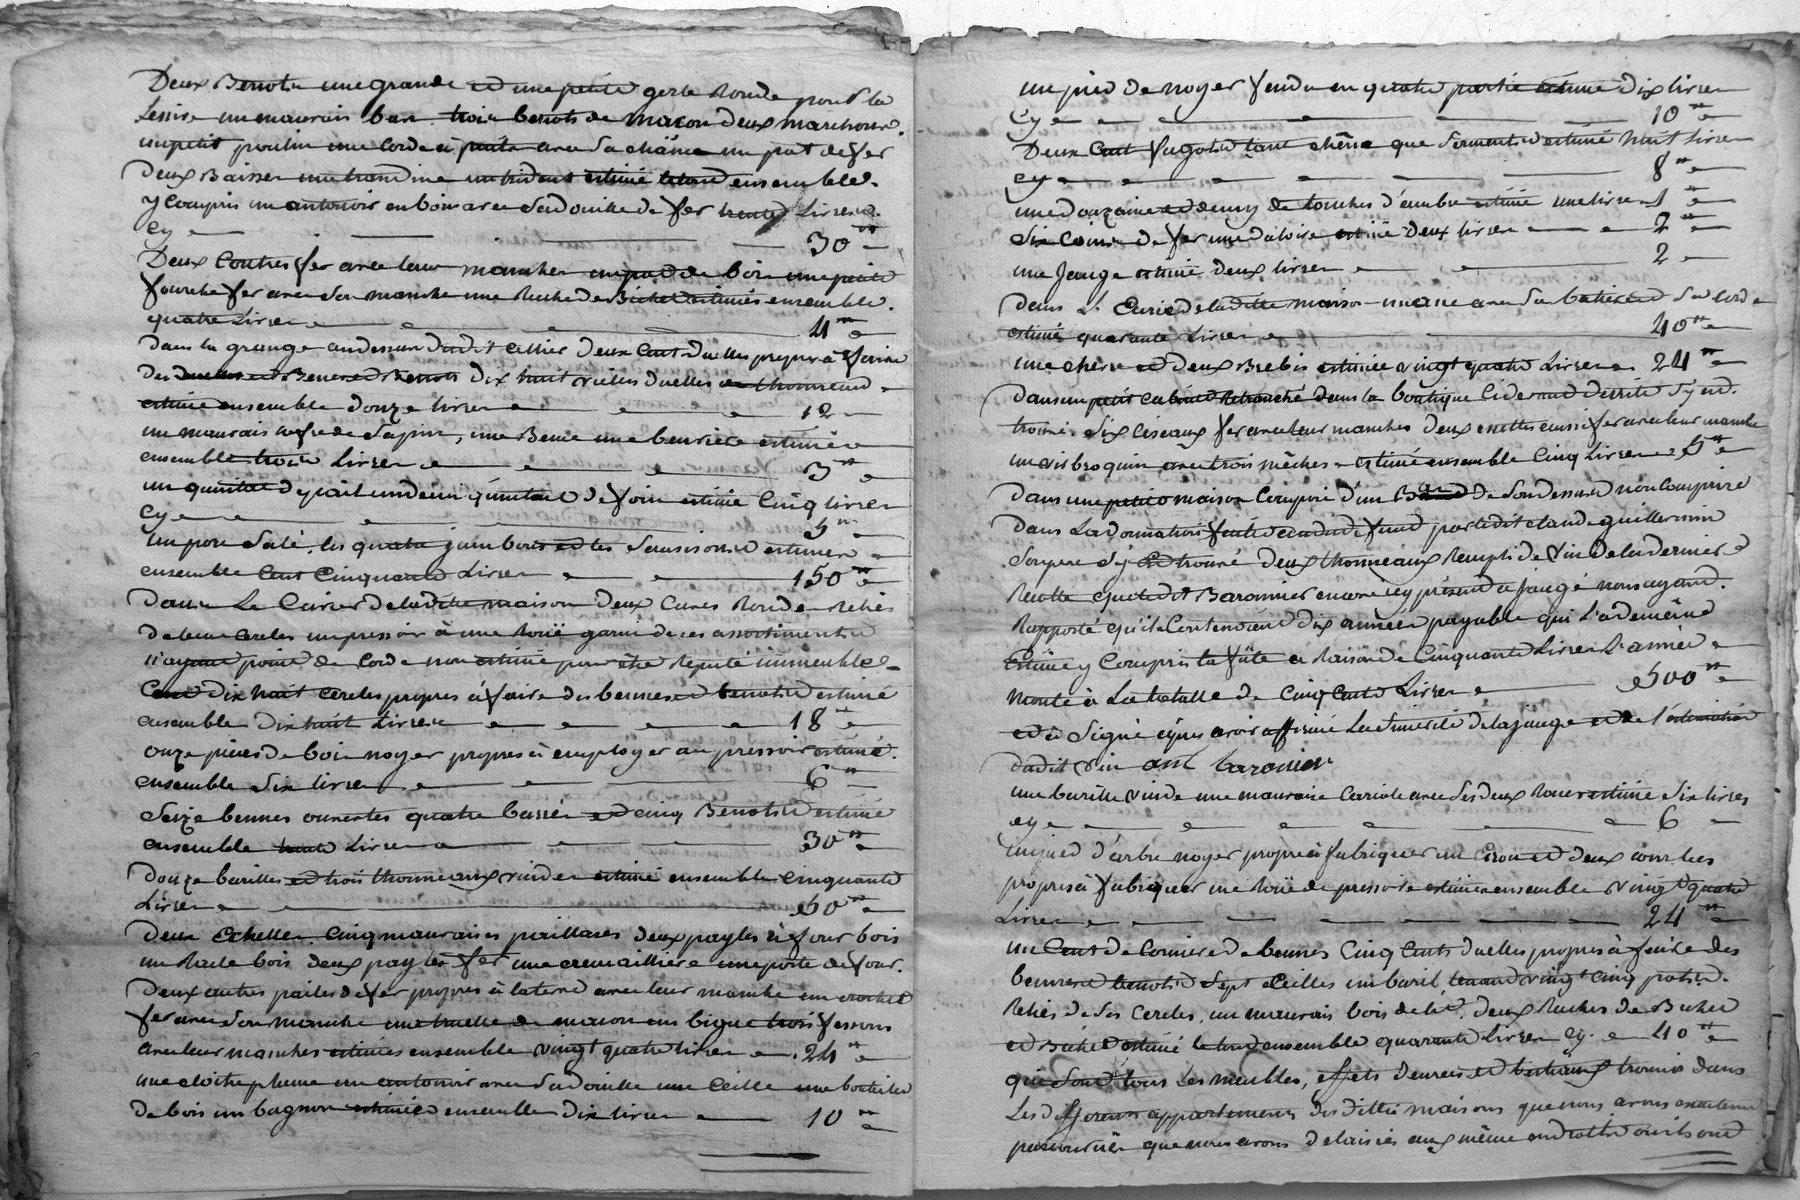 Deux Benots une grande et une petite gerle Ronde pour la
Lessive un mauvais banc trois benots de macon deux marchoux
un petit poulin une corde à puits avec sa chaine un pot de fer
Deux Baisses un trident estimé le tout ensemble
y compris un antonoir en bois avec sa douille de fer trente Livres
Cy 30 "
Deux Coutres fer avec leur manches un pot de bois une petite
fourche fer avec son manche une Ruche de Bichet estimés ensemble
quatre Livres 4 "
Dans la grange au dessus dudit cellier Deux Cents duelles propres à faire
des bennes et Benots dix huit vielles duelles de thonneaux
estimé ensemble douze livres 12
un mauvais cofre de sapin, une Benne une beurriere estimée
ensemble trois Livres 3 "
un quintal de paille un demy quintal de foin estimé Cinq livres
Cy 5 "
un porc salé, les quatre jambons et les saucissons estimes
ensemble Cent Cinquante Livres 150 "
Dans Le Cuvier de ladite maison deux Cuves Rondes Reliés
de leur cercles un pressoir à une Roüe garni de ses assortiments
n'ayant point de corde non estimé pour être Reputé immeuble
Cent dix huit cercles propres à faire des bennes et benots estimé
ensemble Dix huit Livres 18 "
onze pièces de bois noyer propres à employer au pressoir estimé
ensemble six livres 6 "
Seize bennes ouvertes quatre bassés et cinq Benots estimé
ensemble trente Livres 30 "
douze barilles et trois thonneaux vuides estimé ensemble cinquante
Livres 50 "
Deux Echelles Cinq mauvaises paillases deux payles à four bois
un Racle bois deux payles fer une cremailliere une porte de four
Deux autres pailes de fer propres à la terre avec leur manche un crochet
fer avec son manche une truelle de macon un bigue trois fessous
avec leur manches estimées ensemble vingt quatre livres 24 "
une cloitre plume un antonoir avec sa douille une Ceille une bouteille
de bois un bagnon estimée ensemble dix livres 10 "
un pied de noyer fendu en quatre partie estimé dix livres
Cy 10 "
Deux Cent fagots tant chêne que sarments estimé huit livres
Cy 8 "
une douzaine et demy de torches d'ambre estimé une livre 1 "
Six Coins de fer une daloire estimé deux livres 2 "
une Jauge estimé deux livres 2
Dans L'Ecurie de ladite maison une anesse avec sa batiere et sa corde
estimé quarante Livres 40 "
une chevre et deux Brebis estimée vingt quatre Livres 24 "
Dans un petit cabinet Retranché dans la boutique Cidevant décrite s'y est
trouvé six ciseaux fer avec leur manches deux essettes aussi fer avec leur manche
un visbroquin avec trois mêches estimé ensemble Cinq Livres 5 "
Dans une petite maison Composé d'un Bas et de son dessus non Comprise
dans La donnation faite audit fiancé par ledit Claude Guillermin
son pere s'y est trouvé deux thonneaux Remplis de vin de la derniere
Recolte que ledit Baronnier encore icy présent a Jaugé nous ayant
Rapporté qu'ils Contenoient dix années payable qui L'a de même
Estimé y Compris la fûte à Raison de Cinquante Livres L'année
monte à La totalle de Cinq Cents Livres 500 "
et a Signé après avoir affirmé La sincerité de la jauge et de l'estimation
dudit vin ant baronier
une barille vuide une mauvaise Cariole avec ses deux Roues estimé six livres
cy 6
un pied d'arbre noyer propre à fabriquer un Ecrou et deux courbes
propres à fabriquer une Roüe de pressoir estimé ensemble vingt quatre
Livres 24 "
un Cent de Cornieres de bennes Cinq Cents duelles propres à faire des
bennes et benots Sept Ceilles un baril tenant vingt cinq pots
Reliés de ses Cercles, un mauvais bois de lit, deux Ruches de Bichet
et Bichet estimé le tout ensemble quarante Livres cy 40 "
qui sont tous Les meubles, effets denrées et bestiaux trouvés dans
Les differents appartements des dittes maisons que nous avons exactement
parcourües que nous avons delaisiés aux même endroits où ils ont